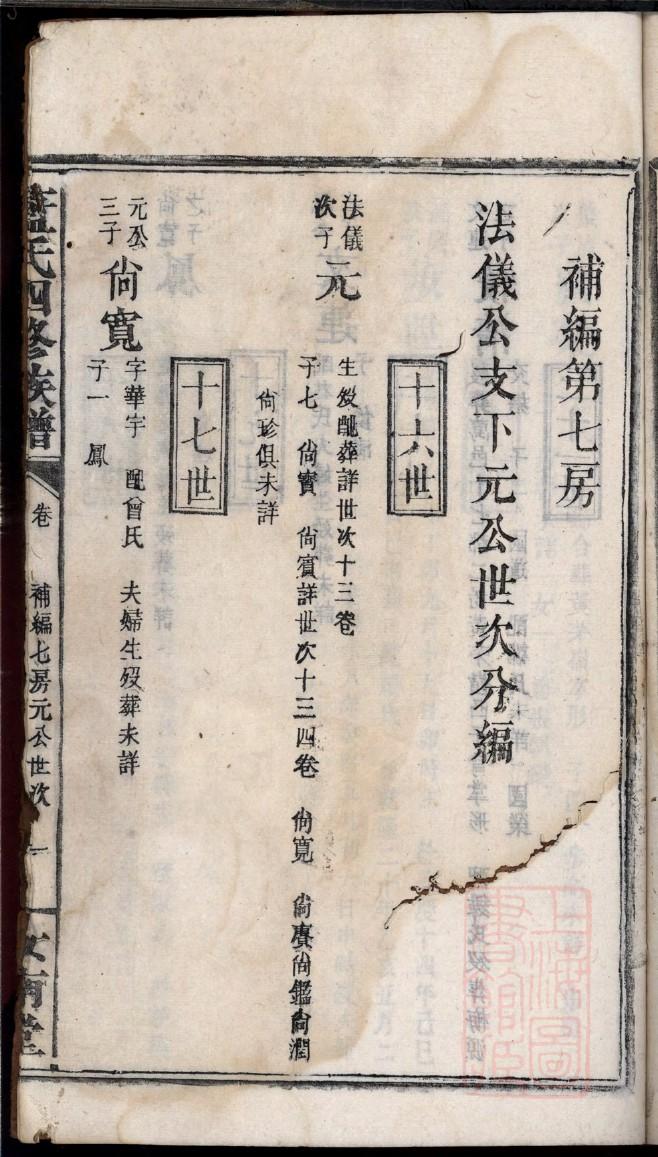 補編第七房
法儀公支下元公世次分編
十六世
法儀
次子
元
生歿配葬詳世次十三卷
子七 尙賓 尙賓詳世次十三四卷 尙寬 尙賡 尙鑑 尙潤
尙珍俱未詳
十七世
元公
三子
尙寬
字華宇 配曾氏 夫婦生歿葬未詳
子一 鳳
氏四修族譜
卷
補編七房元公世次
一
汝南堂
上海圖書館藏